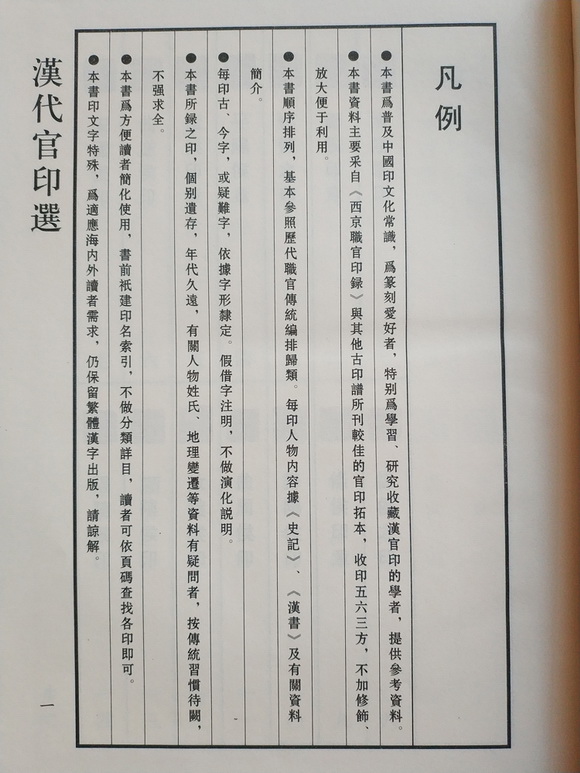 凡例
●本書爲普及中國印文化常識，爲篆刻愛好者，特别爲學習、研究收藏漢官印的學者，提供參考資料。
●本書資料主要采自《西京職官印録》與其他古印譜所刊較佳的官印拓本，收印五六三方，不加修飾、
放大便于利用。
●本書順序排列，基本參照歷代職官傳統編排歸類。每印人物内容據《史記》、《漢書》及有關資料
簡介。
●每印古、今字，或疑難字，依據字形隸定。假借字注明，不做演化説明。
●本書所録之印，個别遺存，年代久遠，有關人物姓氏、地理變遷等資料有疑問者，按傳統習慣待闕，
不强求全。
●本書爲方便讀者簡化使用，書前祇建印名索引，不做分類詳目，讀者可依頁碼查找各印即可。
●本書印文字特殊，爲適應海内外讀者需求，仍保留繁體漢字出版，請諒解。
漢代官印選
一